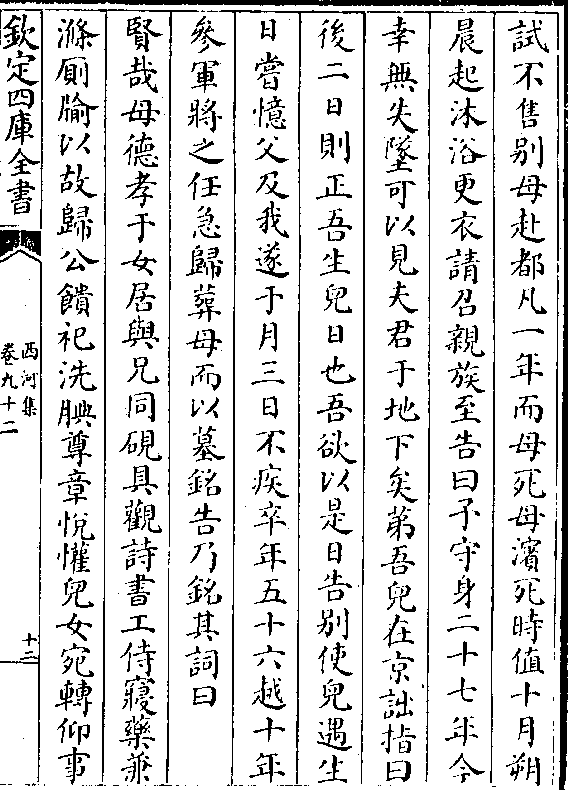 試不售别母赴都凡一年而母死母濵死時值十月朔
晨起沐浴更衣請召親族至告曰予守身二十七年今
幸無失墜可以見夫君于地下矣第吾兒在京詘指曰
後二日則正吾生兒日也吾欲以是日告别使兒遇生
日嘗憶父及我遂于月三日不疾卒年五十六越十年
參軍將之任急歸葬母而以墓銘告乃銘其詞曰
賢哉母德孝于女居與兄同硯具觀詩書工侍寢藥兼
滌厠牏以故歸公饋祀洗腆尊章悅懽兒女宛轉仰事
欽定四庫全書
西河集
卷九十二
十三